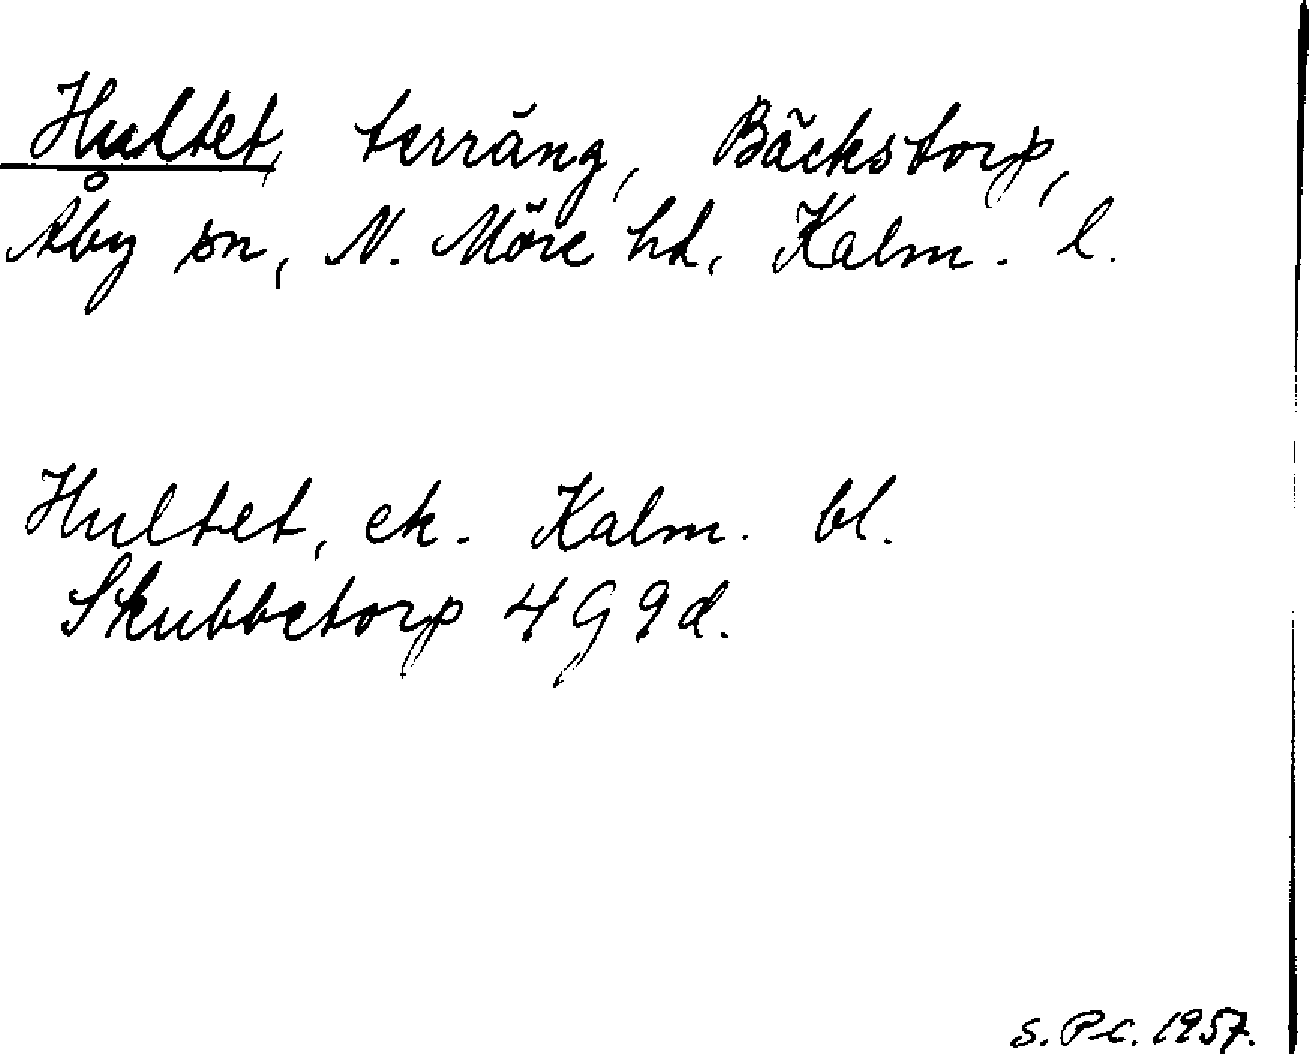 Hultet, terräng, Bäckstorp,
Åby sn, N. Möre hd, Kalm. l.
Hultet, ek. Kalm. bl.
Skubbetorp 4G9d.
S. P-c. 1957.